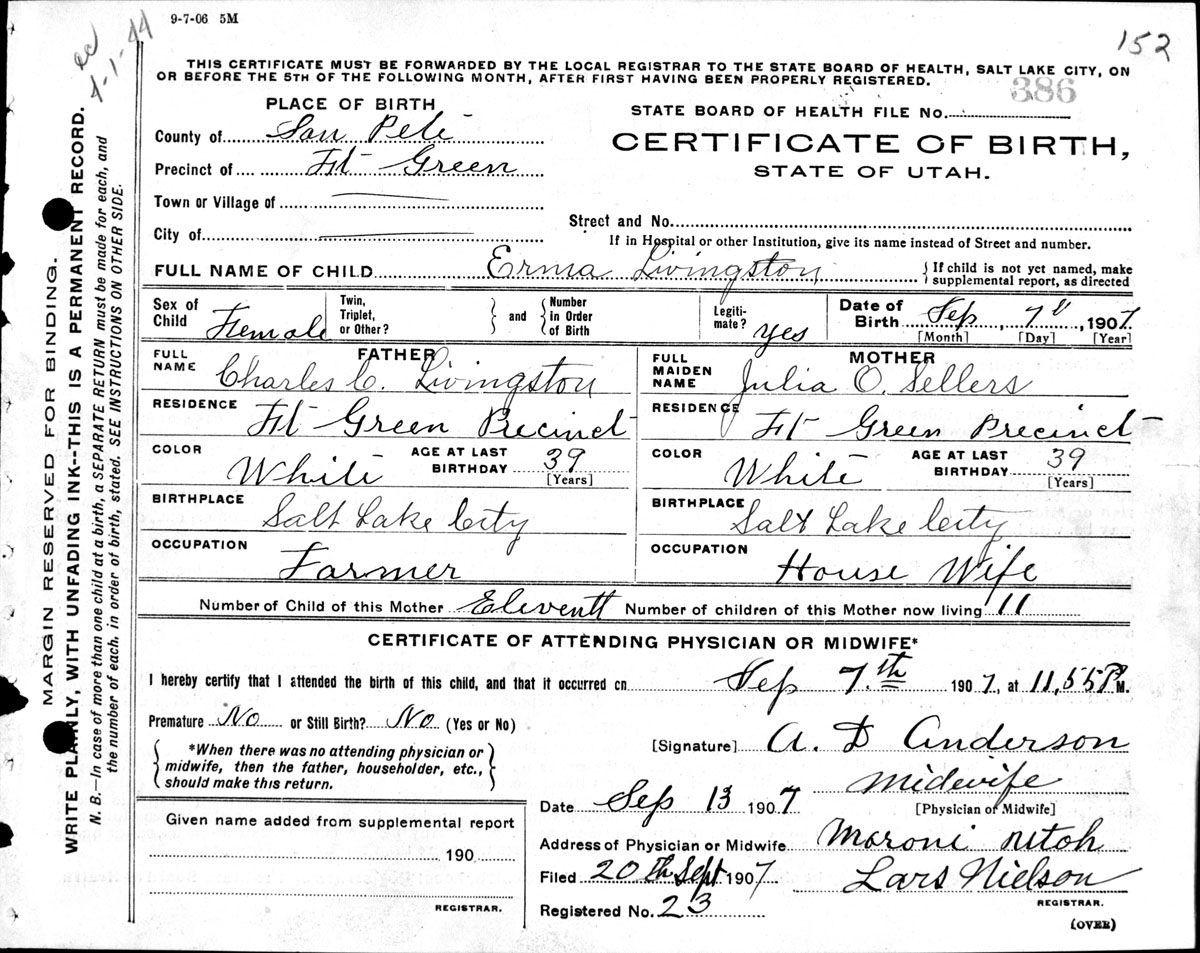 9-7-06 5M
ec
4-1-44
152
THIS CERTIFICATE MUST BE FORWARDED BY THE LOCAL REGISTRAR TO THE STATE BOARD OF HEALTH, SALT LAKE CITY, ON
OR BEFORE THE 5TH OF THE FOLLOWING MONTH, AFTER FIRST HAVING BEEN PROPERLY REGISTERED.
386
PLACE OF BIRTH
STATE BOARD OF HEALTH FILE No.
County of San Pete
CERTIFICATE OF BIRTH,
Precinct of Ft Green
STATE OF UTAH.
Town or Village of
Street and No.
City of
If in Hospital or other Institution, give its name instead of Street and number.
FULL NAME OF CHILD Erma Livingston {If child is not yet named, make
supplemental report, as directed
Sex of Child Female
Twin, Triplet, or Other? } and { Number in Order of Birth
Legiti-mate? Yes
Date of Birth Sep, 7th, 1907
[Month] [Day] [Year]
FATHER
FULL NAME Charles C. Livingston
MOTHER
FULL MAIDEN NAME Julia O. Sellers
RESIDENCE Ft Green Precinct
RESIDENCE Ft Green Precinct
COLOR White AGE AT LAST BIRTHDAY 39
[Years]
COLOR White AGE AT LAST BIRTHDAY 39
[Years]
BIRTHPLACE Salt Lake City
BIRTHPLACE Salt Lake City
OCCUPATION Farmer
OCCUPATION House Wife
Number of Child of this Mother Eleventt Number of children of this Mother now living 11
CERTIFICATE OF ATTENDING PHYSICIAN OR MIDWIFE*
I hereby certify that I attended the birth of this child, and that it occurred on Sep 7.th 1907, at 11,55 P M.
Premature No or Still Birth? No (Yes or No)
{*When there was no attending physician or
midwife, then the father, householder, etc.,
should make this return.}
[Signature] A. D Anderson
Midewife
Date Sep 13 1907
[Physician of Midwife]
Given name added from supplemental report
Address of Physician or Midwife Moroni Utoh
190
Filed 20th Sept 1907 Lars Nielson
REGISTRAR.
REGISTRAR.
Registered No. 23
(OVER)
MARGIN RESERVED FOR BINDING.
WRITE PLAINLY, WITH UNFADING INK--THIS IS A PERMANENT RECORD.
N. B.—In case of more than one child at a birth, a SEPARATE RETURN must be made for each, and
the number of each, in order of birth, stated. SEE INSTRUCTIONS ON OTHER SIDE.